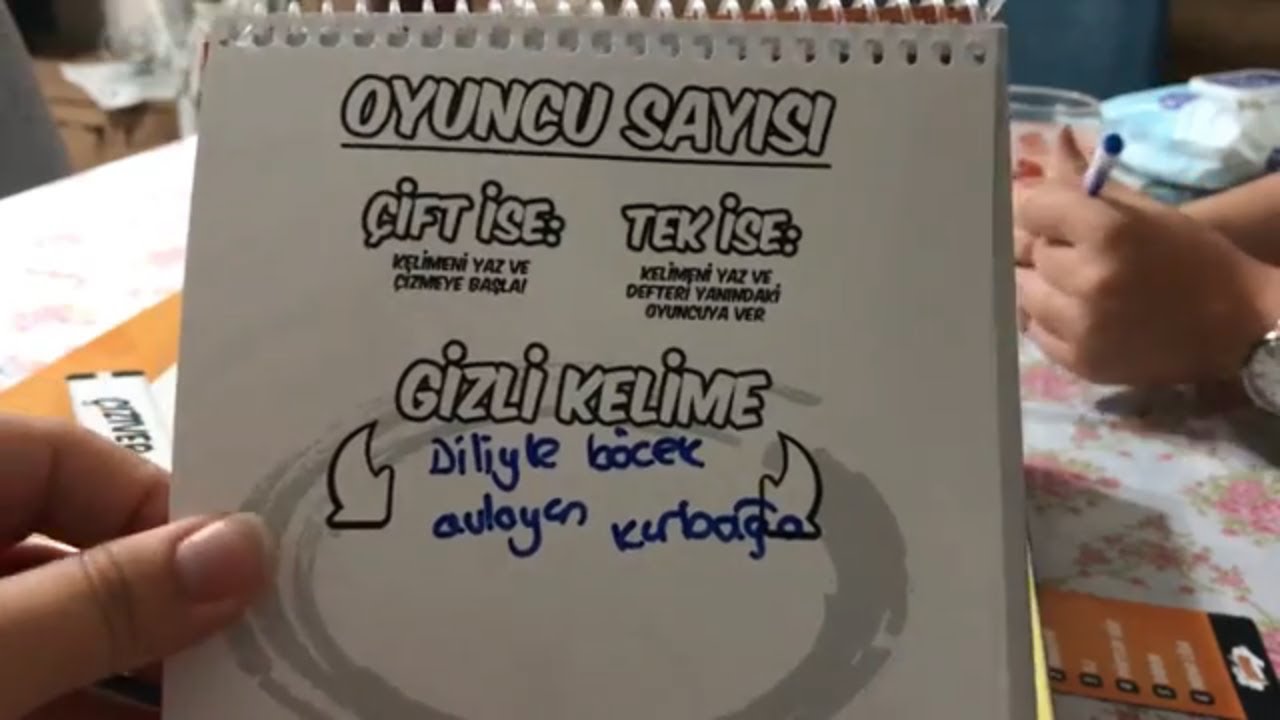 OYUNCU SAYISI
ÇİFT İSE:
KELİMENİ YAZ VE
ÇİZMEYE BAŞLA!
TEK İSE:
KELİMENİ YAZ VE
DEFTERİ YANINDAKİ
OYUNCUYA VER
GİZLİ KELİME
Diliyle böcek
avlayan kurbağa
ÇİZİVER